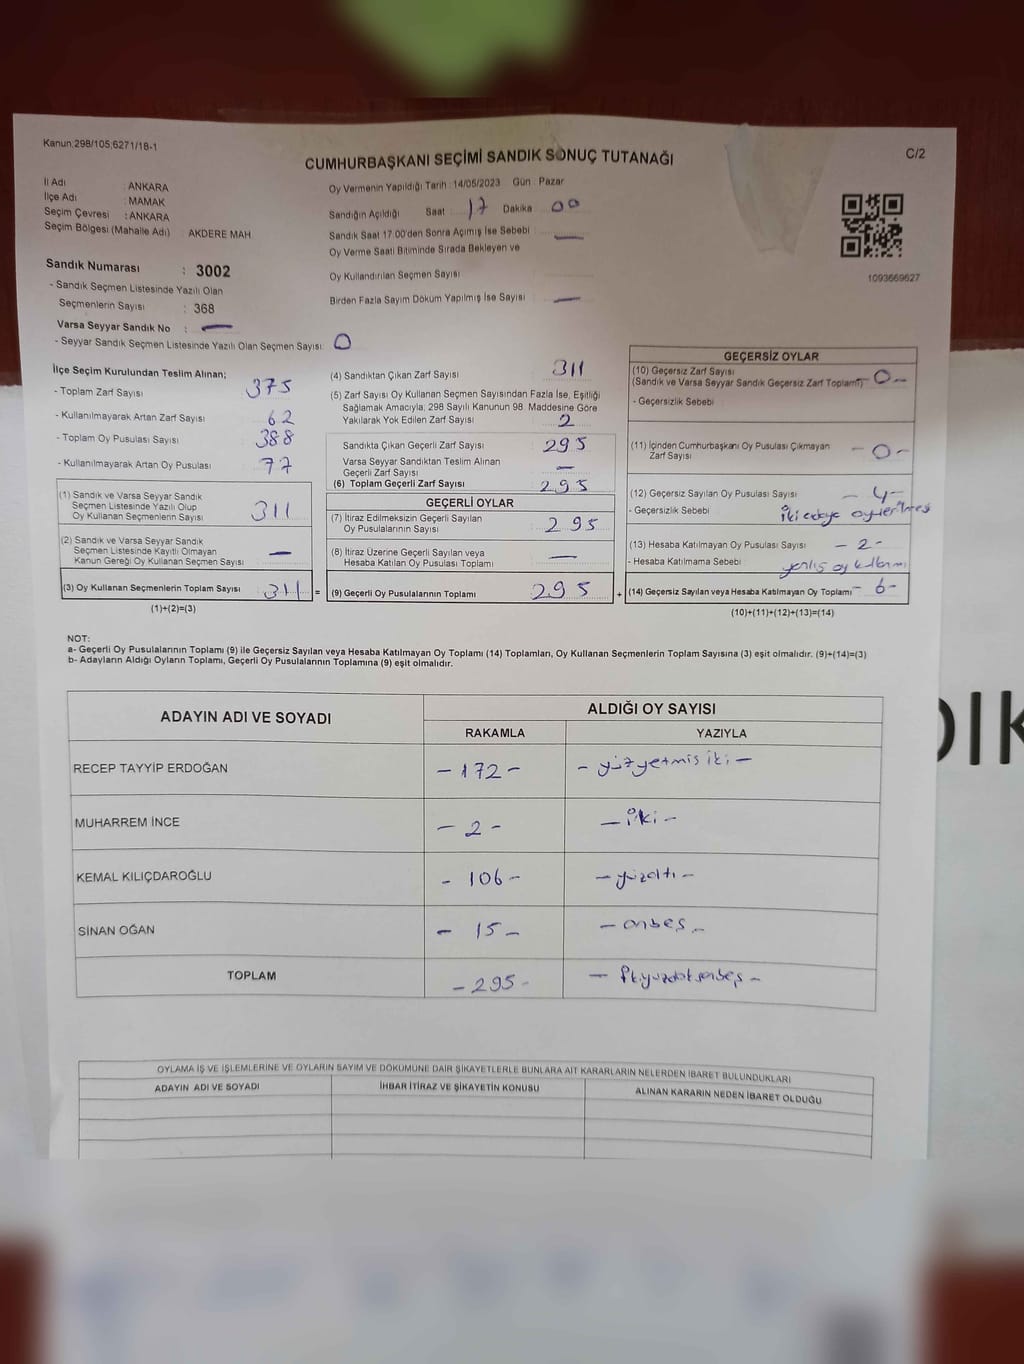 Kanun;298/105,6271/18-1
CUMHURBAŞKANI SEÇİMİ SANDIK SONUÇ TUTANAĞI
C/2
İl Adı : ANKARA
İlçe Adı : MAMAK
Seçim Çevresi : ANKARA
Seçim Bölgesi (Mahalle Adı) : AKDERE MAH.
Oy Vermenin Yapıldığı Tarih : 14/05/2023 Gün : Pazar
Sandığın Açıldığı Saat 17 Dakika 00
Sandık Saat 17.00'den Sonra Açılmış İse Sebebi : —
Oy Verme Saati Bitiminde Sırada Bekleyen ve
Oy Kullandırılan Seçmen Sayısı :
Birden Fazla Sayım Döküm Yapılmış İse Sayısı : —
1093669627
Sandık Numarası : 3002
- Sandık Seçmen Listesinde Yazılı Olan
Seçmenlerin Sayısı : 368
Varsa Seyyar Sandık No : —
- Seyyar Sandık Seçmen Listesinde Yazılı Olan Seçmen Sayısı: 0
İlçe Seçim Kurulundan Teslim Alınan;
- Toplam Zarf Sayısı 375
- Kullanılmayarak Artan Zarf Sayısı 62
- Toplam Oy Pusulası Sayısı 388
- Kullanılmayarak Artan Oy Pusulası 77
(1) Sandık ve Varsa Seyyar Sandık
Seçmen Listesinde Yazılı Olup
Oy Kullanan Seçmenlerin Sayısı 311
(2) Sandık ve Varsa Seyyar Sandık
Seçmen Listesinde Kayıtlı Olmayan
Kanun Gereği Oy Kullanan Seçmen Sayısı —
(3) Oy Kullanan Seçmenlerin Toplam Sayısı 311 =
(1)+(2)=(3)
(4) Sandıktan Çıkan Zarf Sayısı 311
(5) Zarf Sayısı Oy Kullanan Seçmen Sayısından Fazla İse, Eşitliği
Sağlamak Amacıyla; 298 Sayılı Kanunun 98. Maddesine Göre
Yakılarak Yok Edilen Zarf Sayısı 2
Sandıkta Çıkan Geçerli Zarf Sayısı 295
Varsa Seyyar Sandıktan Teslim Alınan
Geçerli Zarf Sayısı —
(6) Toplam Geçerli Zarf Sayısı 295
GEÇERLİ OYLAR
(7) İtiraz Edilmeksizin Geçerli Sayılan
Oy Pusulalarının Sayısı 295
(8) İtiraz Üzerine Geçerli Sayılan veya
Hesaba Katılan Oy Pusulası Toplamı —
(9) Geçerli Oy Pusulalarının Toplamı 295 +
GEÇERSİZ OYLAR
(10) Geçersiz Zarf Sayısı
(Sandık ve Varsa Seyyar Sandık Geçersiz Zarf Toplamı) - 0 -
- Geçersizlik Sebebi
(11) İçinden Cumhurbaşkanı Oy Pusulası Çıkmayan
Zarf Sayısı - 0 -
(12) Geçersiz Sayılan Oy Pusulası Sayısı - 4 -
- Geçersizlik Sebebi iki adaya oy verilmesi
(13) Hesaba Katılmayan Oy Pusulası Sayısı - 2 -
- Hesaba Katılmama Sebebi yanlış oy kullanımı
(14) Geçersiz Sayılan veya Hesaba Katılmayan Oy Toplamı - 6 -
(10)+(11)+(12)+(13)=(14)
NOT:
a- Geçerli Oy Pusulalarının Toplamı (9) ile Geçersiz Sayılan veya Hesaba Katılmayan Oy Toplamı (14) Toplamları, Oy Kullanan Seçmenlerin Toplam Sayısına (3) eşit olmalıdır. (9)+(14)=(3)
b- Adayların Aldığı Oyların Toplamı, Geçerli Oy Pusulalarının Toplamına (9) eşit olmalıdır.
ADAYIN ADI VE SOYADI ALDIĞI OY SAYISI
RAKAMLA YAZIYLA
RECEP TAYYİP ERDOĞAN - 172 - - yüzyetmiş iki -
MUHARREM İNCE - 2 - - iki -
KEMAL KILIÇDAROĞLU - 106 - - yüzaltı -
SİNAN OĞAN - 15 - - onbeş -
TOPLAM - 295 - - ikiyüzdoksanbeş -
OYLAMA İŞ VE İŞLEMLERİNE VE OYLARIN SAYIM VE DÖKÜMÜNE DAİR ŞİKAYETLERLE BUNLARA AİT KARARLARIN NELERDEN İBARET BULUNDUKLARI
ADAYIN ADI VE SOYADI İHBAR İTİRAZ VE ŞİKAYETİN KONUSU ALINAN KARARIN NEDEN İBARET OLDUĞU
DIK